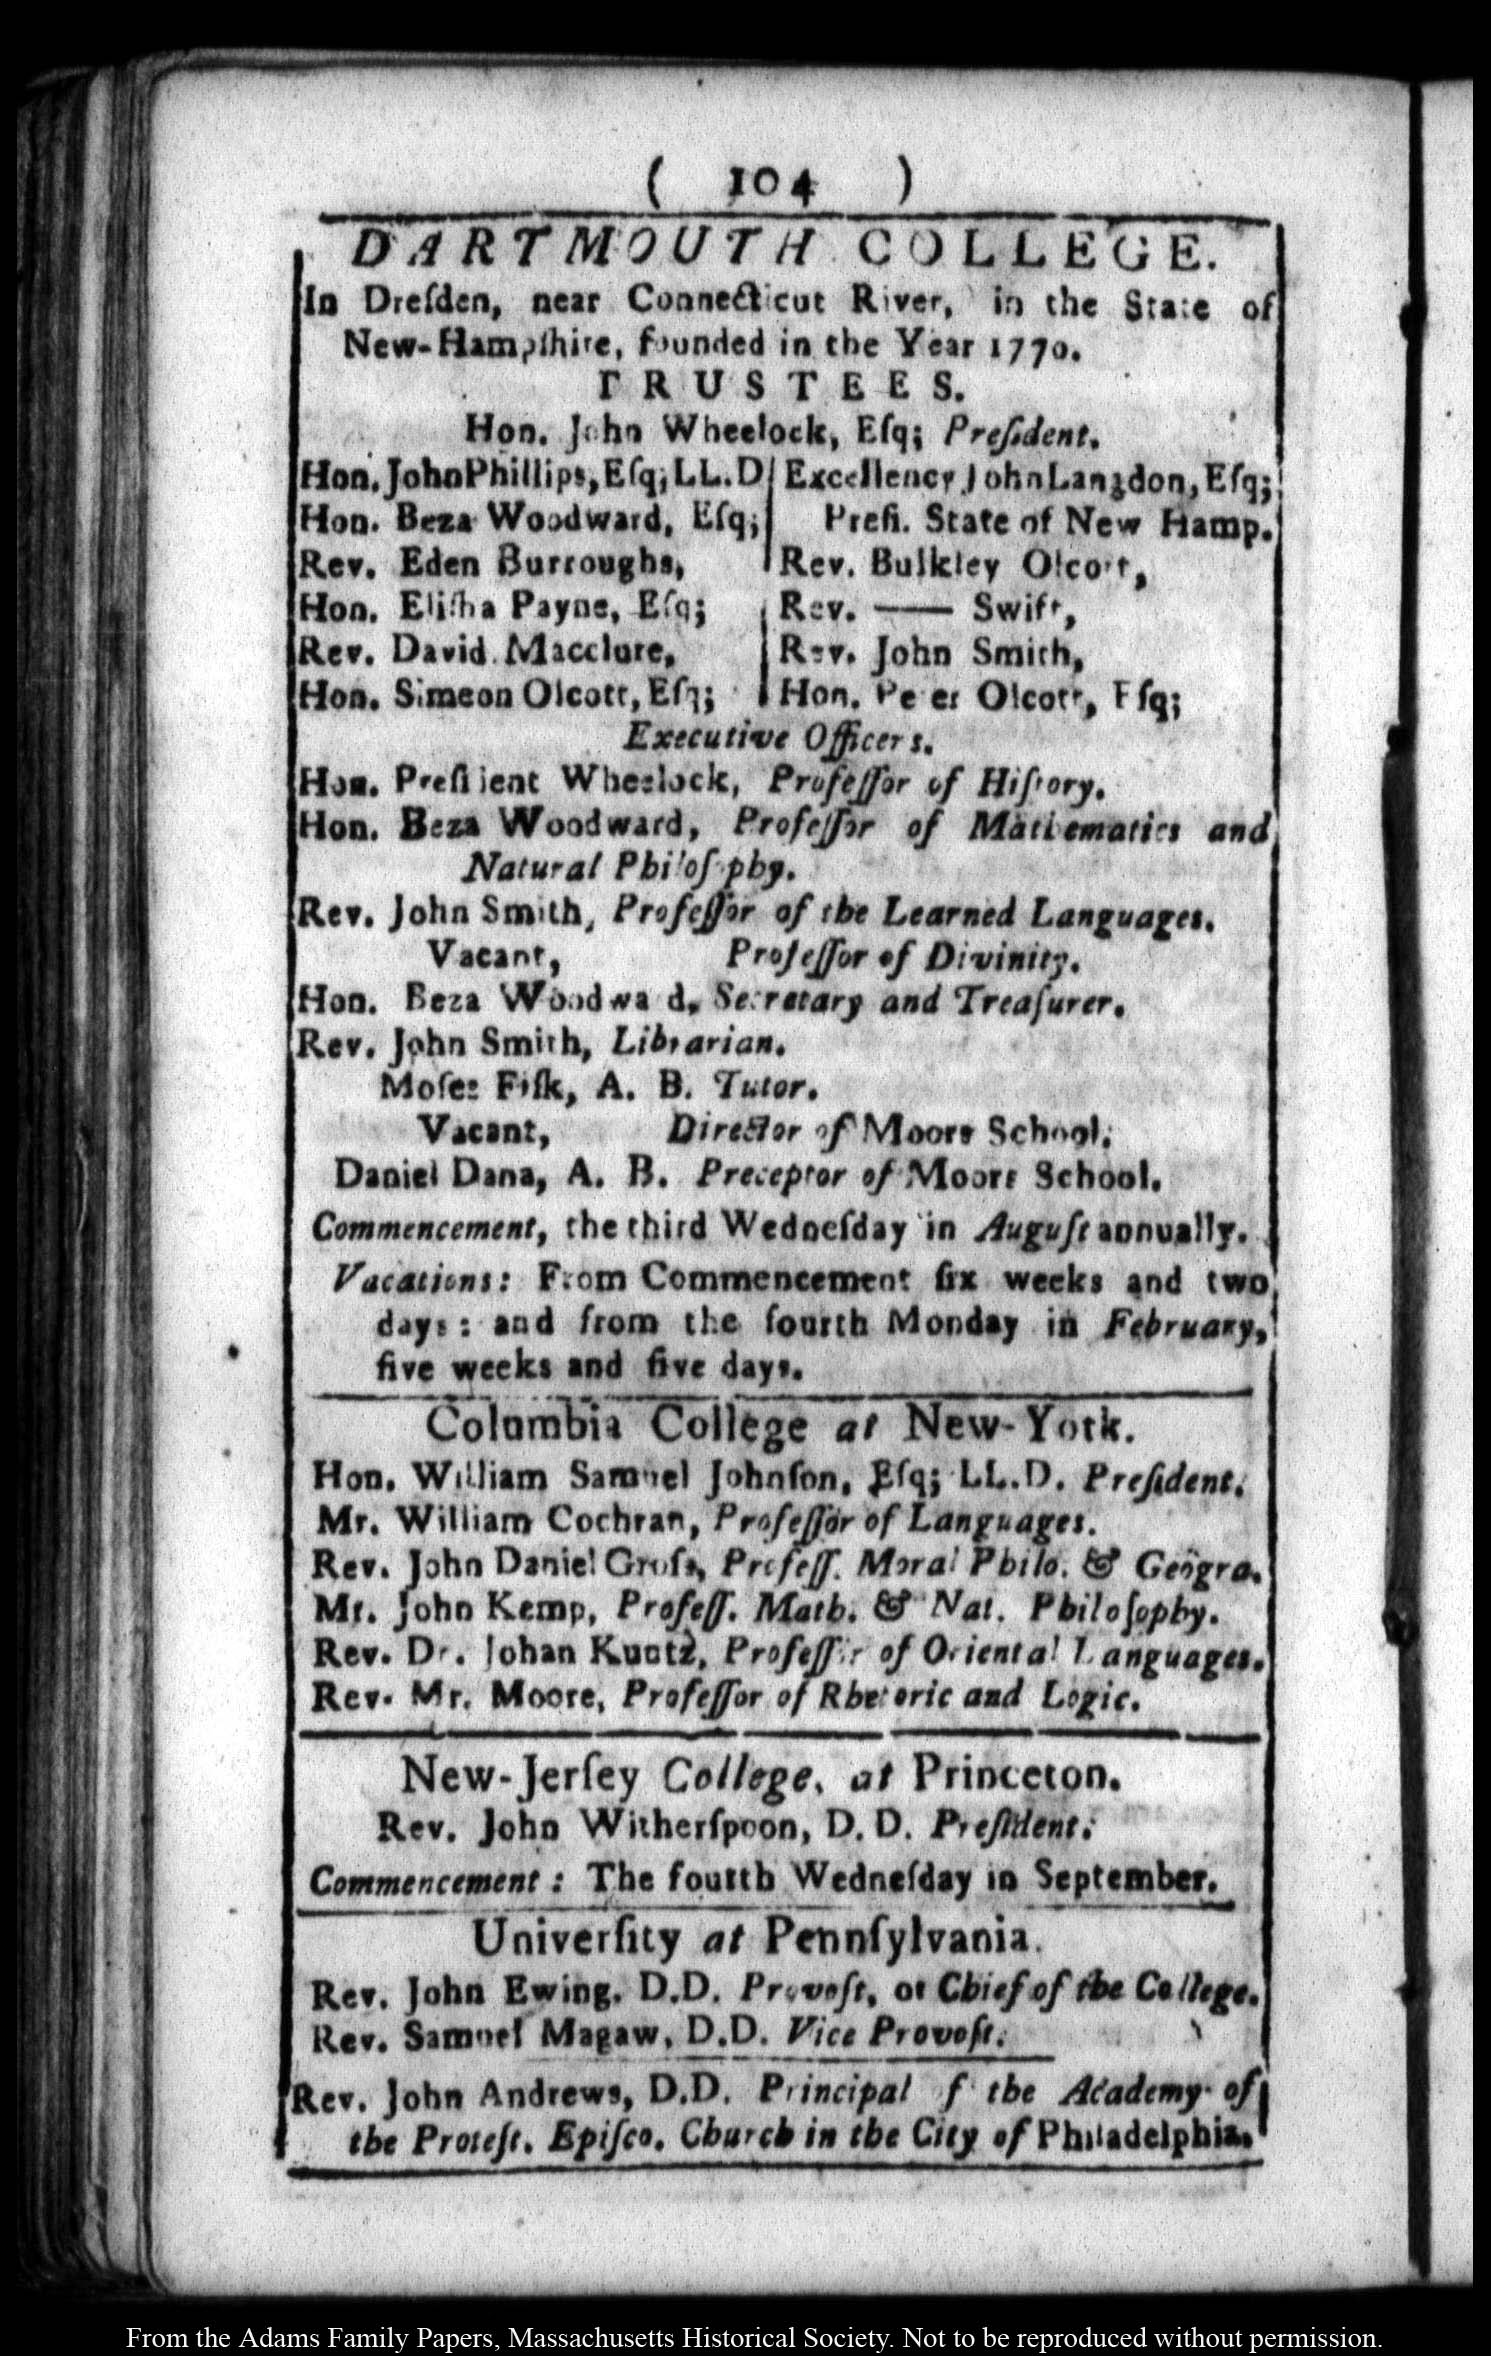 ( 104 )
DARTMOUTH COLLEGE.
In Dreſden, near Connecticut River, in the State of
New-Hampſhire, founded in the Year 1770.
TRUSTEES.
Hon. John Wheelock, Eſq; Preſident.
Hon. John Phillips, Eſq; LL.D
Hon. Beza Woodward, Eſq;
Rev. Eden Burroughs,
Hon. Eliſha Payne, Eſq;
Rev. David Macclure,
Hon. Simeon Olcott, Eſq;
Excellency John Langdon, Eſq;
Preſi. State of New Hamp.
Rev. Bulkley Olcott,
Rev. —— Swift,
Rev. John Smith,
Hon. Peter Olcott, Eſq;
Executive Officers.
Hon. Preſident Wheelock, Profeſſor of Hiſtory.
Hon. Beza Woodward, Profeſſor of Mathematics and
Natural Philoſophy.
Rev. John Smith, Profeſſor of the Learned Languages.
Vacant, Profeſſor of Divinity.
Hon. Beza Woodward, Secretary and Treaſurer.
Rev. John Smith, Librarian.
Moſes Fiſk, A. B. Tutor.
Vacant, Director of Moors School.
Daniel Dana, A. B. Preceptor of Moors School.
Commencement, the third Wedneſday in Auguſt annually.
Vacations: From Commencement ſix weeks and two
days: and from the fourth Monday in February,
five weeks and five days.
Columbia College at New-York.
Hon. William Samuel Johnſon, Eſq; LL.D. Preſident.
Mr. William Cochran, Profeſſor of Languages.
Rev. John Daniel Groſs, Profeſſ. Moral Philo. & Geögra.
Mr. John Kemp, Profeſſ. Math. & Nat. Philoſophy.
Rev. Dr. Johan Kuntz, Profeſſor of Oriental Languages.
Rev. Mr. Moore, Profeſſor of Rhetoric and Logic.
New-Jerſey College, at Princeton.
Rev. John Witherſpoon, D.D. Preſident.
Commencement: The fourth Wedneſday in September.
Univerſity at Pennſylvania.
Rev. John Ewing, D.D. Provoſt, or Chief of the College.
Rev. Samuel Magaw, D.D. Vice Provoſt.
Rev. John Andrews, D.D. Principal of the Academy of
the Proteſt. Epiſco. Church in the City of Philadelphia.
From the Adams Family Papers, Massachusetts Historical Society. Not to be reproduced without permission.